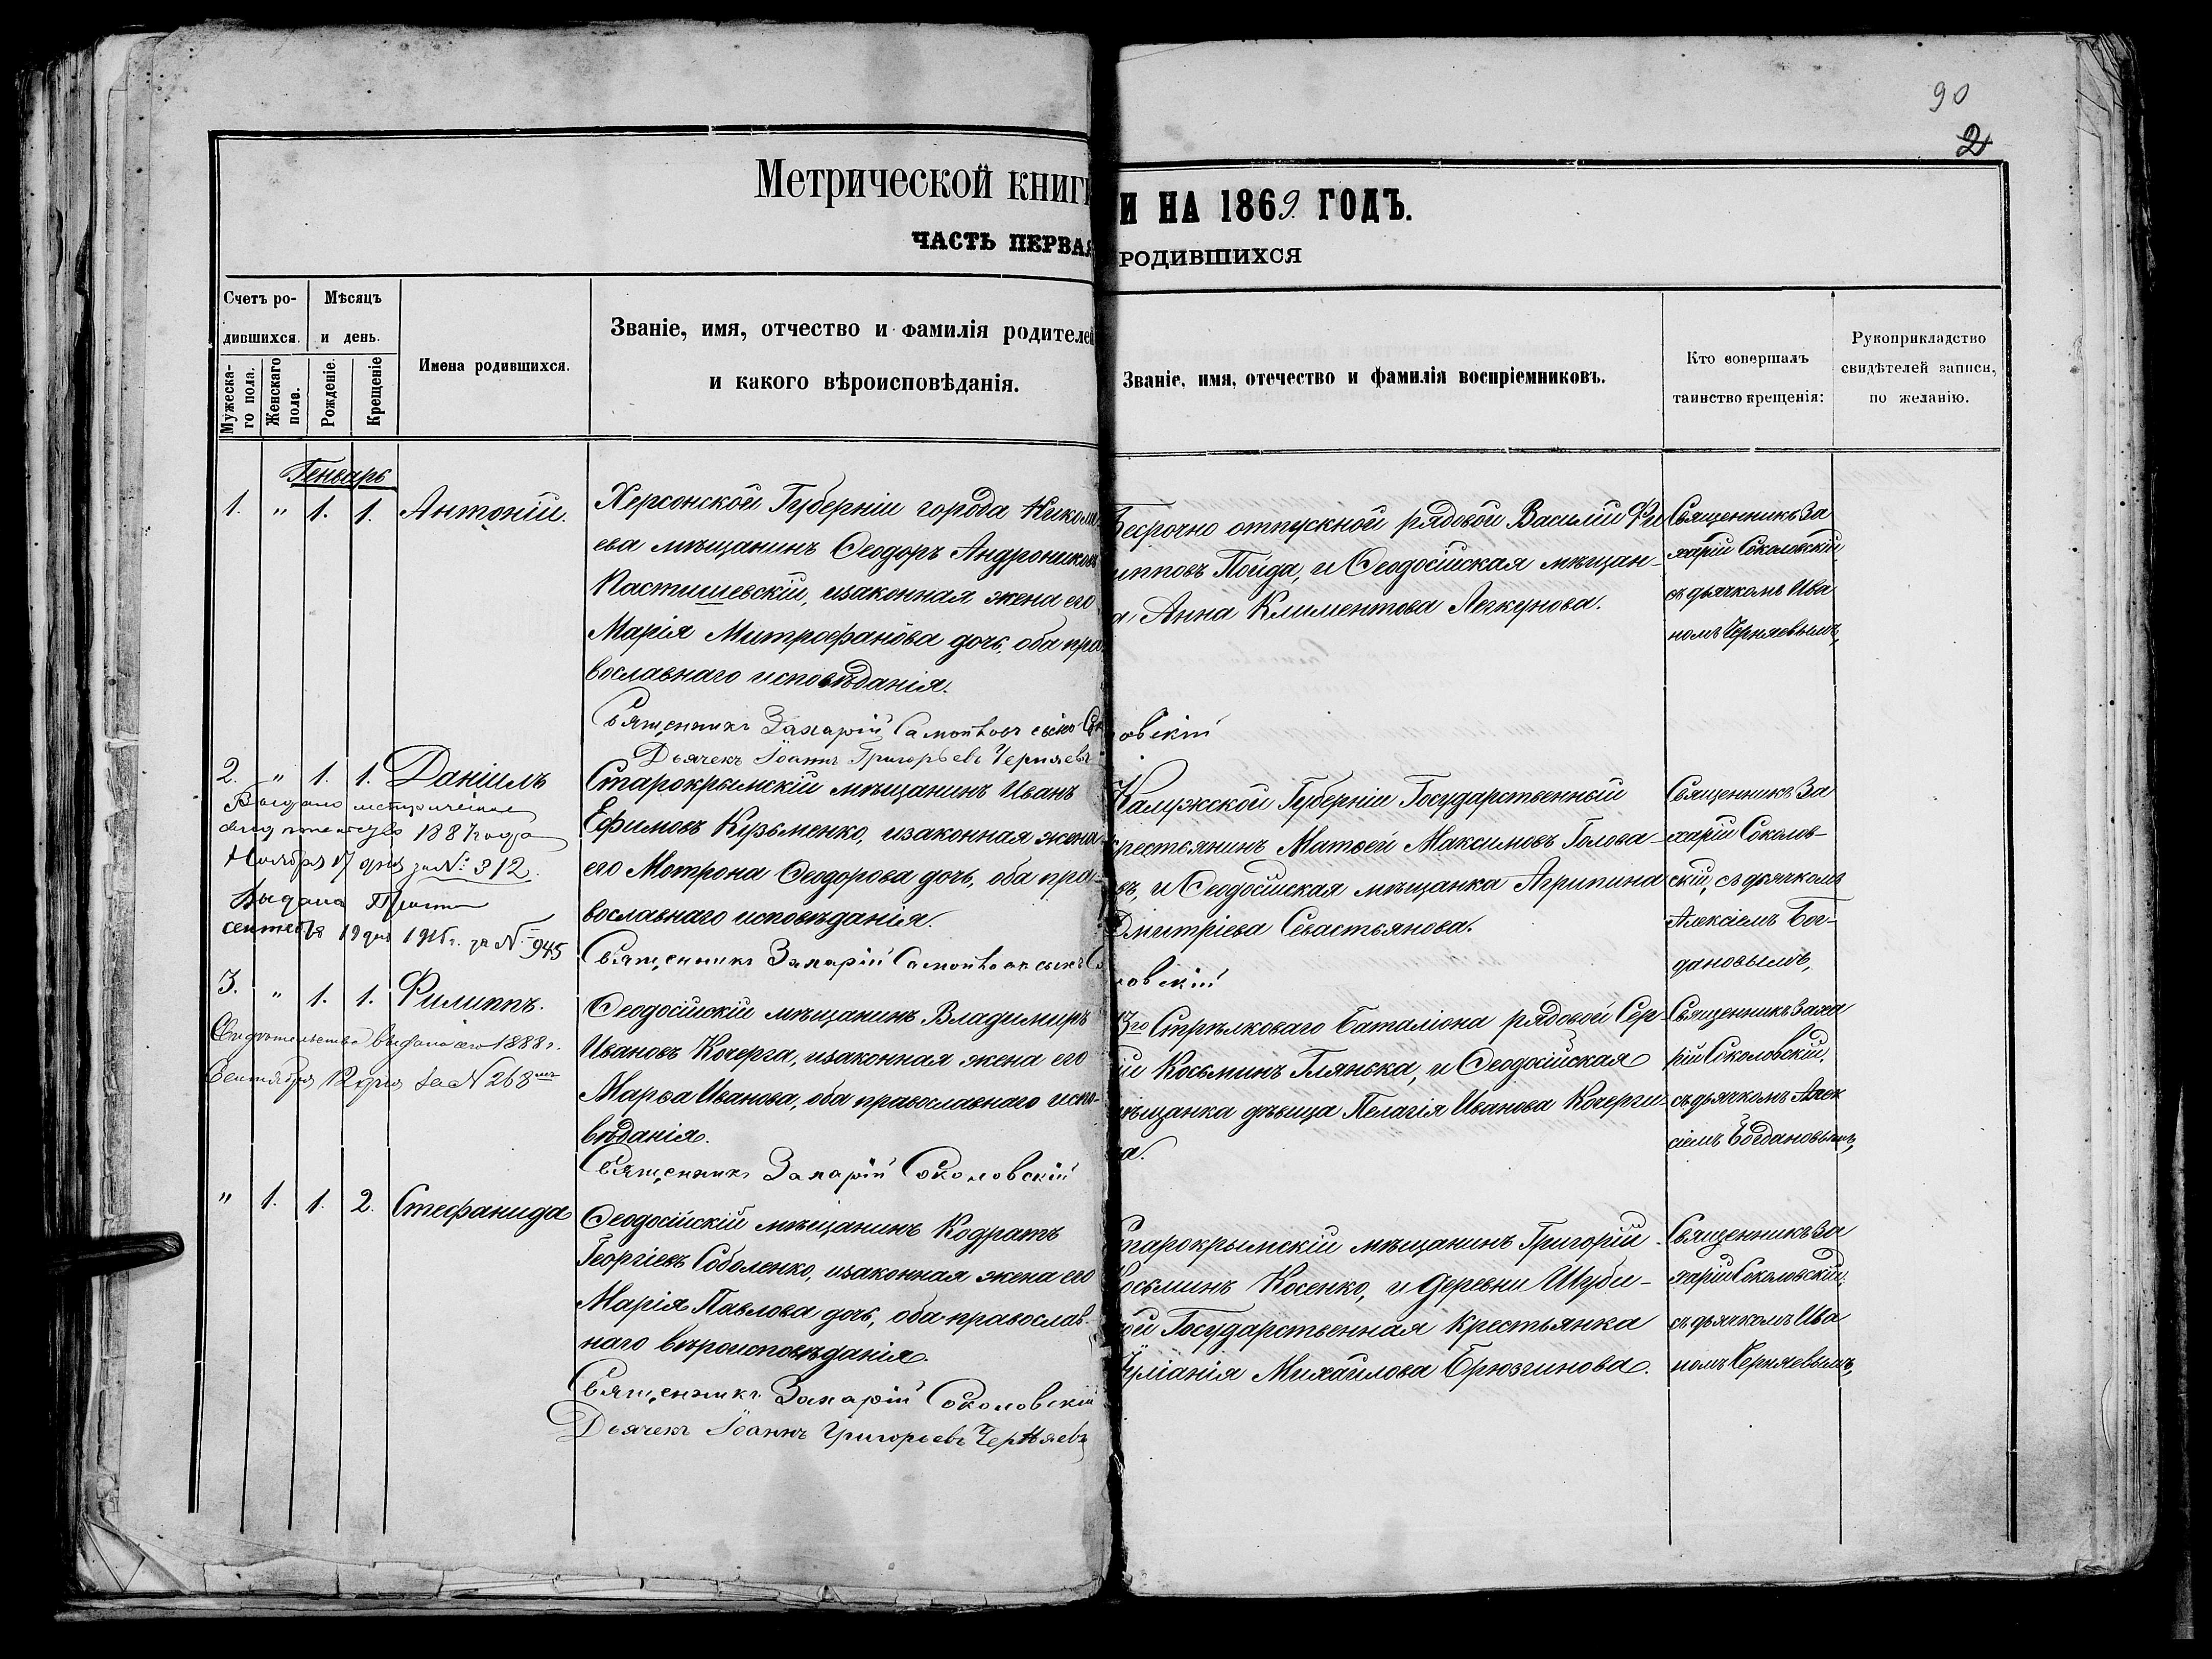 90
2
Метрической книги
И НА 1869. ГОДЪ.
ЧАСТЬ ПЕРВАЯ
РОДИВШИХСЯ
Счетъ ро-
дившихся.
Мѣсяцъ
и день.
Мужеска-
го пола.
Женскаго
пола.
Рожденіе.
Крещеніе
Имена родившихся.
Званіе, имя, отчество и фамилія родителей
и какого вѣроисповѣданія.
Званіе, имя, отечество и фамилія воспріемниковъ.
Кто совершалъ
таинство крещенія:
Рукоприкладство
свидѣтелей записи,
по желанію.
Генварь
1. " 1. 1. Антоній.
Херсонской Губерніи города Никола
ева мѣщанинъ Ѳеодоръ Андрониковъ
Пастишевскій, изаконная жена его
Марія Митрофанова дочь, оба пра
вославнаго исповѣданія.
Священникъ Захарій Самойловъ сынъ Со
Дьячекъ Іоаннъ Григорьевъ Черняевъ
Безсрочно отпускной рядовой Василій Фи
липповъ Поида, и Ѳеодосійская мѣщан-
а Анна Климентова Легкунова.
овскій
Священникъ За
харій Соколовскій,
съ дьячкомъ Ива
номъ Черняевымъ,
2. " 1. 1. Даніилъ
Выдано метрическое
свидѣтельство 1887 года
Ноября 17 дня за № 312.
Выдана
сентября 19 дня 1915 г. за № 945
Старокрымскій мѣщанинъ Иванъ
Ефимовъ Кузьменко, изаконная жена
его Мотрона Ѳеодорова дочь, оба пра-
вославнаго исповѣданія.
Священникъ Захарій Самойловъ сынъ Со
Калужской Губерніи Государственный
крестьянинъ Матвей Максимовъ Голова-
въ, и Ѳеодосійская мѣщанка Агрипина
Дмитріева Севастьянова.
ловскій
Священникъ За
харій Соколов-
скій, съ дьячкомъ
Алексіемъ Бог-
дановымъ,
3. " 1. 1. Филиппъ.
Свидѣтельство выдано его 1888 г.
Сентября 12 дня за № 268
Ѳеодосійскій мѣщанинъ Владимиръ
Ивановъ Кочерга, изаконная жена его
Марѳа Иванова, оба православнаго испо-
вѣданія.
Священникъ Захарій Соколовскій
13го Стрѣлковаго баталіона рядовой Сер
ій Косьминъ Глянька, и Ѳеодосійская
мѣщанка дѣвица Пелагія Иванова Кочерги
на.
Священникъ Заха
рій Соколовскій,
съ дьячкомъ Алек
сіемъ Богдановымъ,
" 1. 1. 2. Стефанида
Ѳеодосійскій мѣщанинъ Кодратъ
Георгіевъ Соболенко, изаконная жена его
Марія Павлова дочь, оба православ-
наго вѣроисповѣданія.
Священникъ Захарій Соколовскій
Дьячекъ Іоаннъ Григорьевъ Черняевъ
Старокрымскій мѣщанинъ Григорій
Косьминъ Косенко, и деревни Шуби-
ной Государственная крестьянка
Іуліанія Михайлова Брюзгинова.
Священникъ За
харій Соколовскій,
съ дьячкомъ Ива
номъ Черняевымъ,